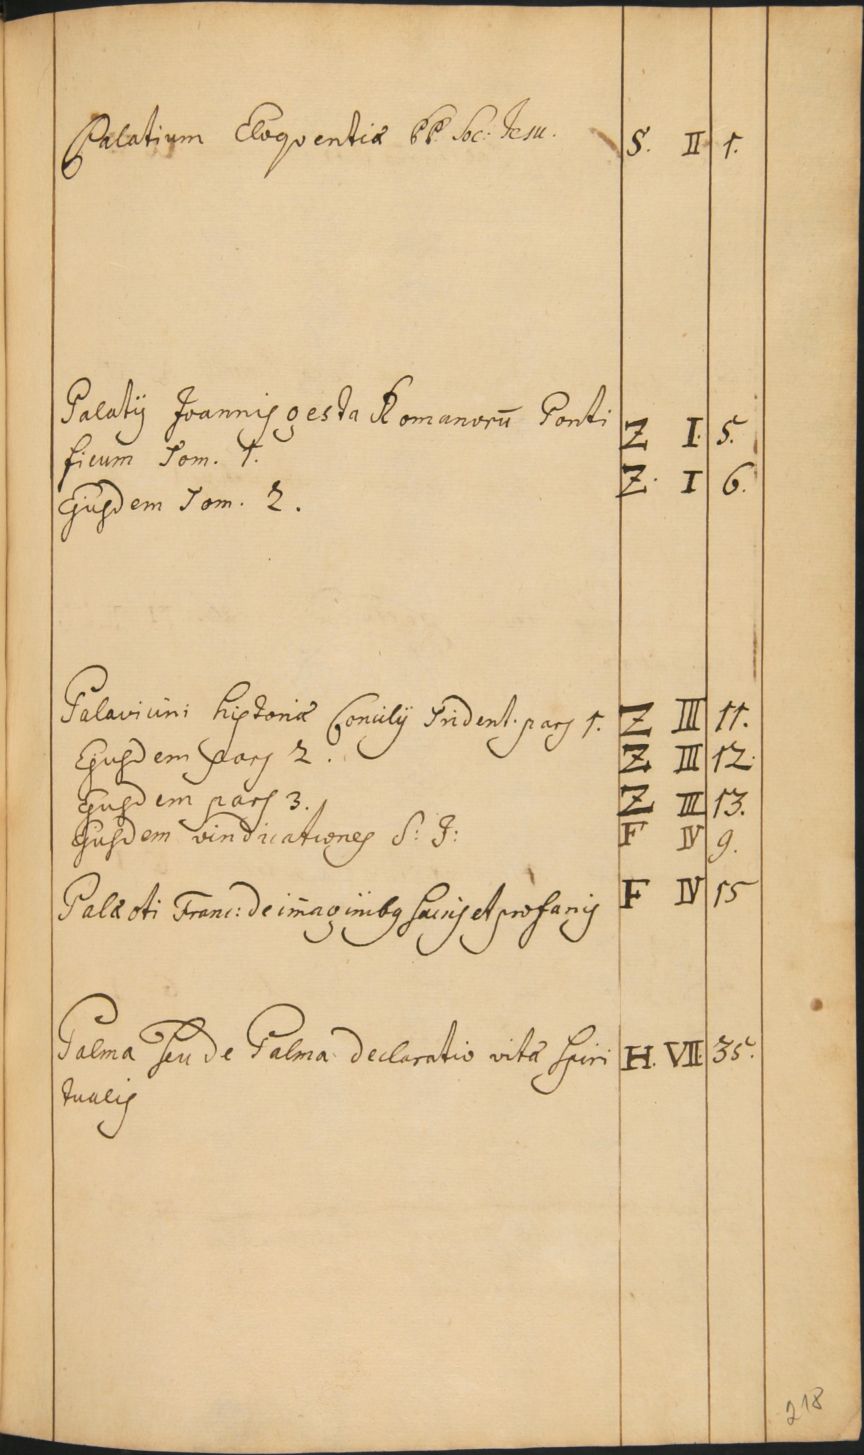 Palatium Eloqventiæ PP. Soc: Jesu. S. II 1.
Palatij Joannis gesta Romanorū Ponti
ficum Tom. 1. Z I. 5.
Ejusdem Tom. 2. Z. I 6.
Palavicini historiæ Concilij Trident. pars 1. Z III 11.
Ejusdem pars 2. Z III 12.
Ejusdem pars 3. Z III 13.
Ejusdem vindicationes S: J: F IV 9.
Palæoti Franc: de imaginibq sacris et profanis F IV 15
Palma seu de Palma declaratio vitæ spiri H. VII. 35.
tualis
218